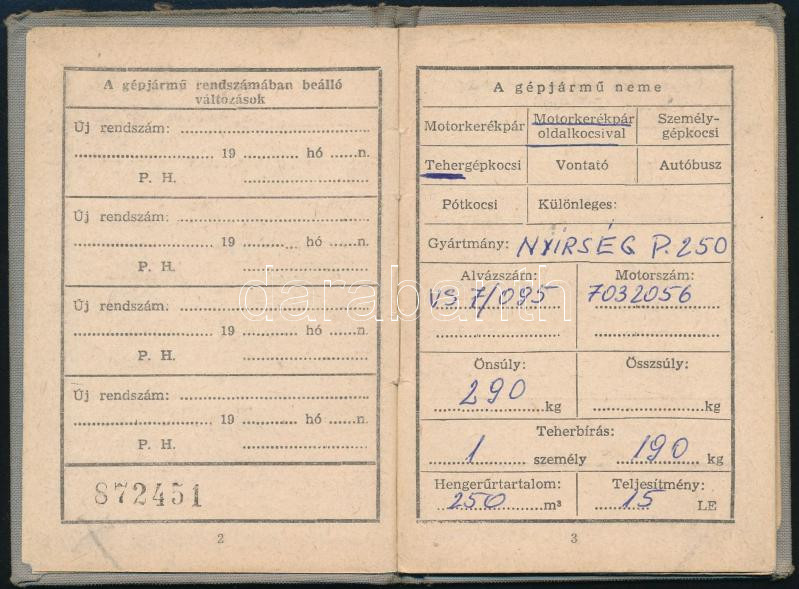 A gépjármű rendszámában beálló
változások
Új rendszám: ................................
................ 19 ............ hó ...... n.
P. H. ................................
Új rendszám: ................................
................ 19 ............ hó ...... n.
P. H. ................................
Új rendszám: ................................
................ 19 ............ hó ...... n.
P. H. ................................
Új rendszám: ................................
................ 19 ............ hó ...... n.
P. H. ................................
872451
2
A gépjármű neme
Motorkerékpár
Motorkerékpár
oldalkocsival
Személy-
gépkocsi
Tehergépkocsi
Vontató
Autóbusz
Pótkocsi
Különleges:
Gyártmány: NYÍRSÉG P.250
Alvázszám:
VS 7/095
Motorszám:
7032056
Önsúly:
290 kg
Összsúly:
................ kg
Teherbírás:
1 személy 190 kg
Hengerűrtartalom:
250 m³
Teljesítmény:
15 LE
3
darabanth